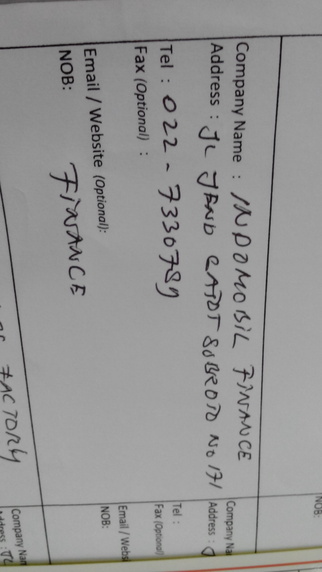 Company Name : INDOMOBIL FINANCE
Address : JL JEND GATOT SUBROTO NO 171
Tel : 022 - 7330789
Fax (Optional) :
Email / Website (Optional):
NOB: FINANCE
FACTORY
NOB:
Company Nam
Address :
Tel :
Fax (Optional)
Email / Websi
NOB:
Company Nam
Address : JL